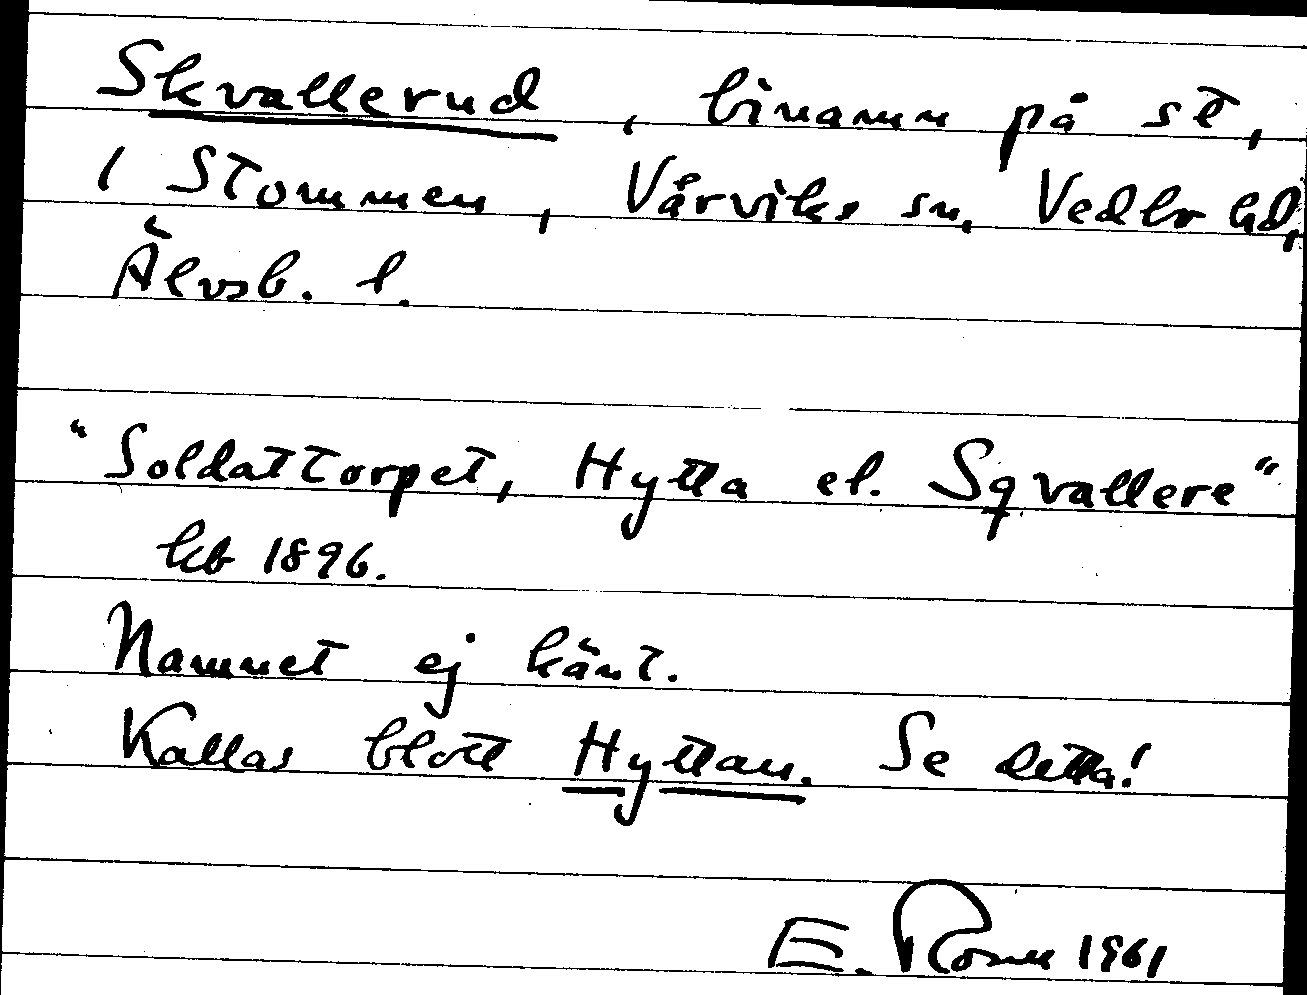 Skvallerud, binamn på st,
1 Stommen, Vårviks sn, Vedbo hd,
Älvsb. l.
"Soldattorpet, Hytta el. Sqvallere"
kb 1896.
Namnet ej känt.
Kallas blott Hyttan. Se detta!
E. 1961